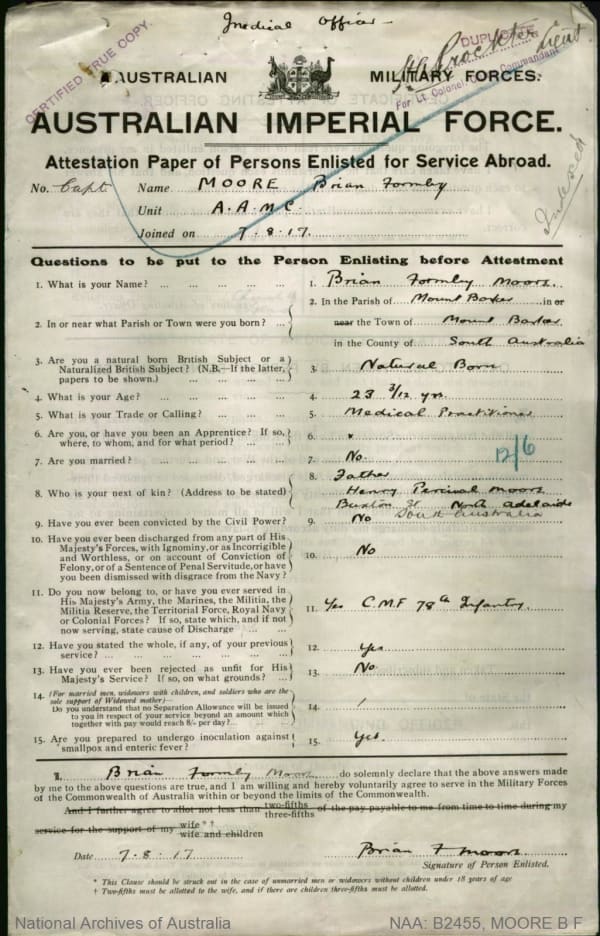 Medical Officer
CERTIFIED TRUE COPY.
DUPLICATE
Lieut
For Lt. Colonel, Commandant
AUSTRALIAN MILITARY FORCES.
AUSTRALIAN IMPERIAL FORCE.
Attestation Paper of Persons Enlisted for Service Abroad.
No. Capt Name MOORE Brian Formby
Unit A.A.M.C.
Indexed
Joined on 7.8.17.
Questions to be put to the Person Enlisting before Attestation
1. What is your Name? ... 1. Brian Formby Moore
2. In or near what Parish or Town were you born? ... 2. In the Parish of Mount Barker in or
near the Town of Mount Barker
in the County of South Australia
3. Are you a natural born British Subject or a
Naturalized British Subject? (N.B.—If the latter,
papers to be shown.) ... 3. Natural Born
4. What is your Age? ... 4. 23 3/12 yrs.
5. What is your Trade or Calling? ... 5. Medical Practitioner
6. Are you, or have you been an Apprentice? If so,
where, to whom, and for what period? ... 6.
7. Are you married? ... 7. No. 12/6
8. Who is your next of kin? (Address to be stated) 8. Father
Henry Percival Moore
Buxton St North Adelaide
South Australia
9. Have you ever been convicted by the Civil Power? 9. No
10. Have you ever been discharged from any part of His
Majesty's Forces, with Ignominy, or as Incorrigible
and Worthless, or on account of Conviction of
Felony, or of a Sentence of Penal Servitude, or have
you been dismissed with disgrace from the Navy? 10. No
11. Do you now belong to, or have you ever served in
His Majesty's Army, the Marines, the Militia, the
Militia Reserve, the Territorial Force, Royal Navy
or Colonial Forces? If so, state which, and if not
now serving, state cause of Discharge ... 11. Yes C.M.F 78th Infantry
12. Have you stated the whole, if any, of your previous
service? ... 12. Yes
13. Have you ever been rejected as unfit for His
Majesty's Service? If so, on what grounds? ... 13. No
14. (For married men, widowers with children, and soldiers who are the
sole support of Widowed mother)—
Do you understand that no Separation Allowance will be issued
to you in respect of your service beyond an amount which
together with pay would reach 8/- per day? ... 14. /
15. Are you prepared to undergo inoculation against
smallpox and enteric fever? 15. Yes.
I, Brian Formby Moore do solemnly declare that the above answers made
by me to the above questions are true, and I am willing and hereby voluntarily agree to serve in the Military Forces
of the Commonwealth of Australia within or beyond the limits of the Commonwealth.
And I further agree to allot not less than two-fifths of the pay payable to me from time to time during my
three-fifths
service for the support of my wife*†
wife and children
Date 7.8.17 Brian F Moore
Signature of Person Enlisted.
* This Clause should be struck out in the case of unmarried men or widowers without children under 18 years of age
† Two-fifths must be allotted to the wife, and if there are children three-fifths must be allotted.
National Archives of Australia NAA: B2455, MOORE B F